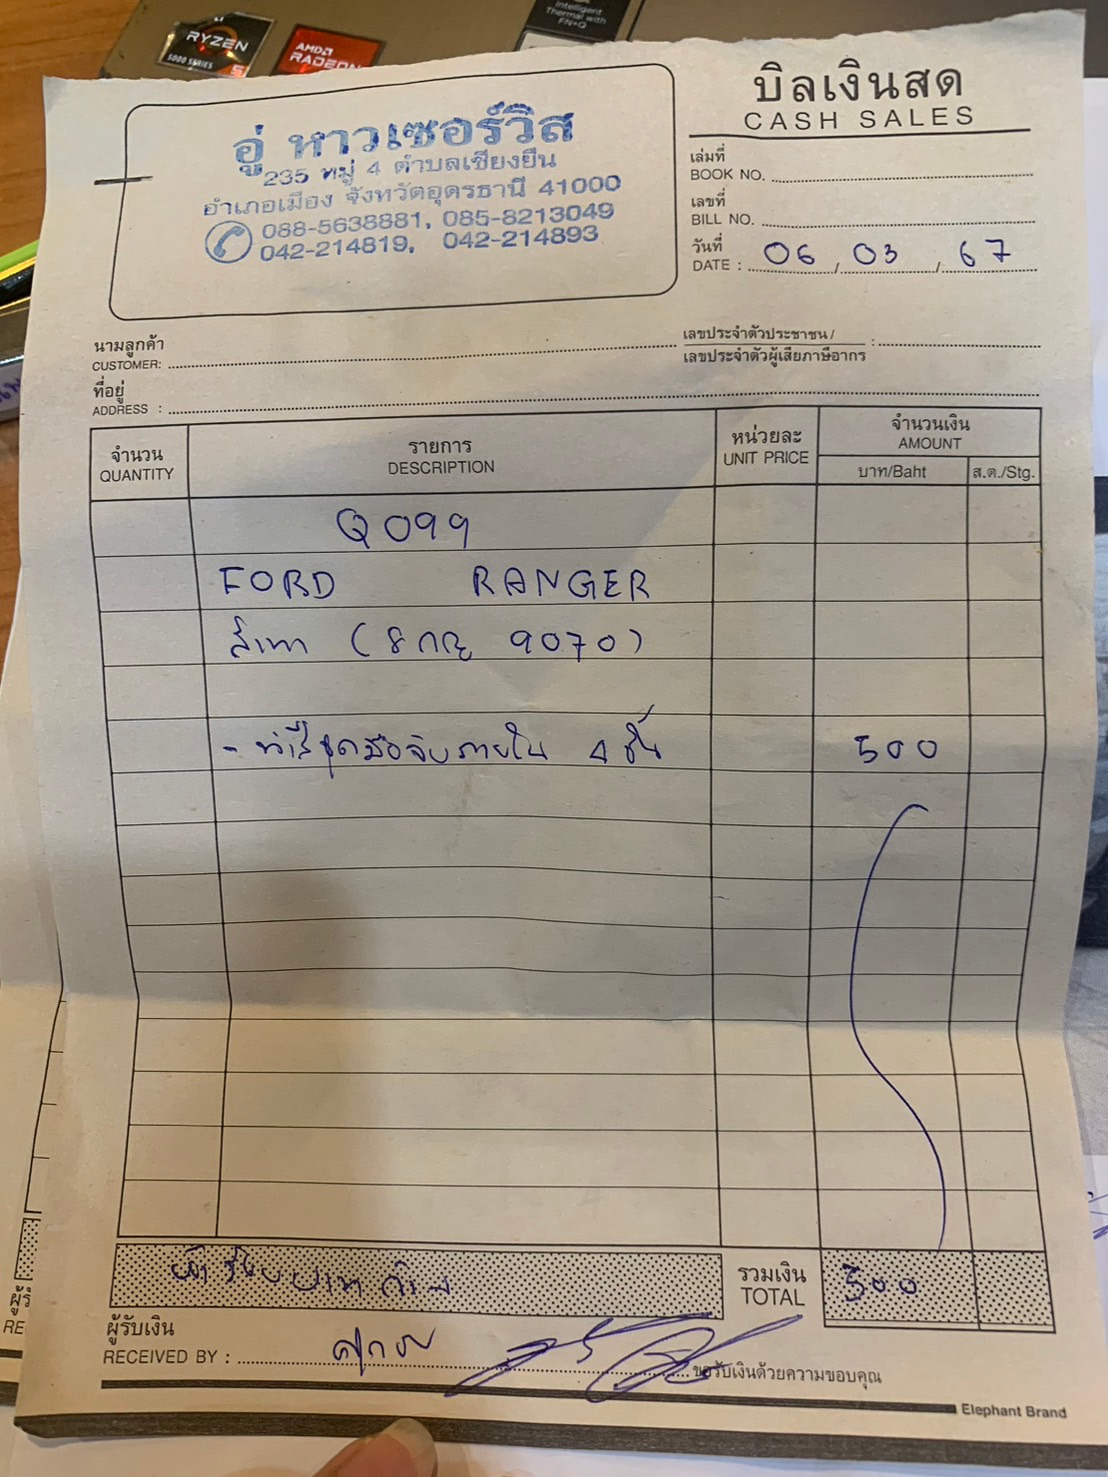 RYZEN
5000 SERIES 5
AMD
RADEON
Intelligent
Thermal with
FN+Q
อู่ หาวเซอร์วิส
235 หมู่ 4 ตำบลเชียงยืน
อำเภอเมือง จังหวัดอุดรธานี 41000
088-5638881, 085-8213049
042-214819, 042-214893
บิลเงินสด
CASH SALES
เล่มที่
BOOK NO.
เลขที่
BILL NO.
วันที่
DATE : 06 / 03 / 67
นามลูกค้า
CUSTOMER:
เลขประจำตัวประชาชน /
เลขประจำตัวผู้เสียภาษีอากร :
ที่อยู่
ADDRESS :
จำนวน
QUANTITY
รายการ
DESCRIPTION
หน่วยละ
UNIT PRICE
จำนวนเงิน
AMOUNT
บาท/Baht
ส.ต./Stg.
Q099
FORD RANGER
สีเทา (8กญ 9070)
- ทำสีชุดมือจับภายใน 4 ชิ้น 500
ห้าร้อยบาทถ้วน
รวมเงิน
TOTAL
500
ผู้รับเงิน
RECEIVED BY :
ขอรับเงินด้วยความขอบคุณ
Elephant Brand